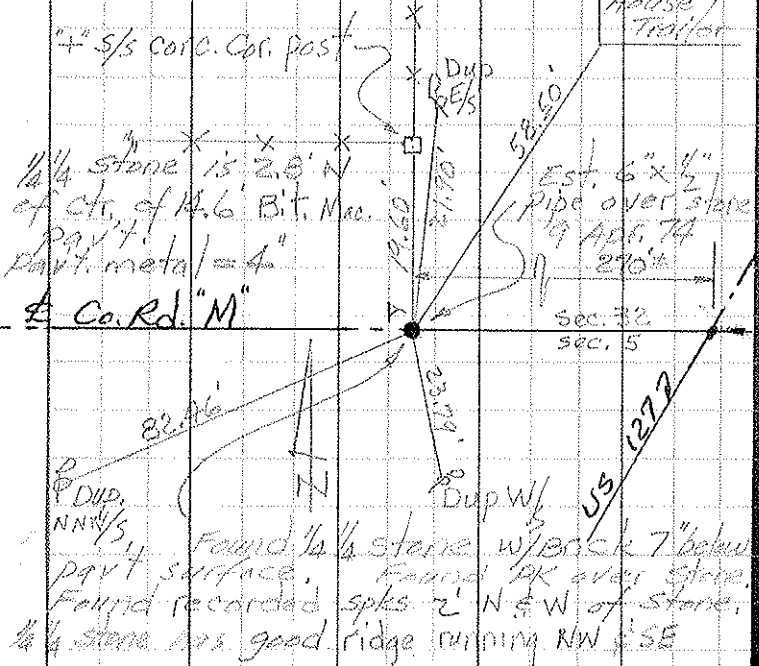 House
Trailer
"+" s/s conc. Cor. post
Dup
E/s
58.50'
¼ ¼ stone is 2.8' N
of ctr. of 14.6' Bit. Mac.
pav't.
pavt. metal = 4"
19.60'
21.90'
Est. 6" x ½"
pipe over stone
9 Apr. 74
270'±
℄ Co. Rd. "M"
sec. 32
sec. 5
82.46'
23.79'
US 127
N
Dup.
NNW/s
Dup W/s
Found ¼ ¼ stone w/Brick 7" below
pav't surface. Found PK over stone.
Found recorded spks 2' N & W of stone.
¼ ¼ stone has good ridge running NW & SE